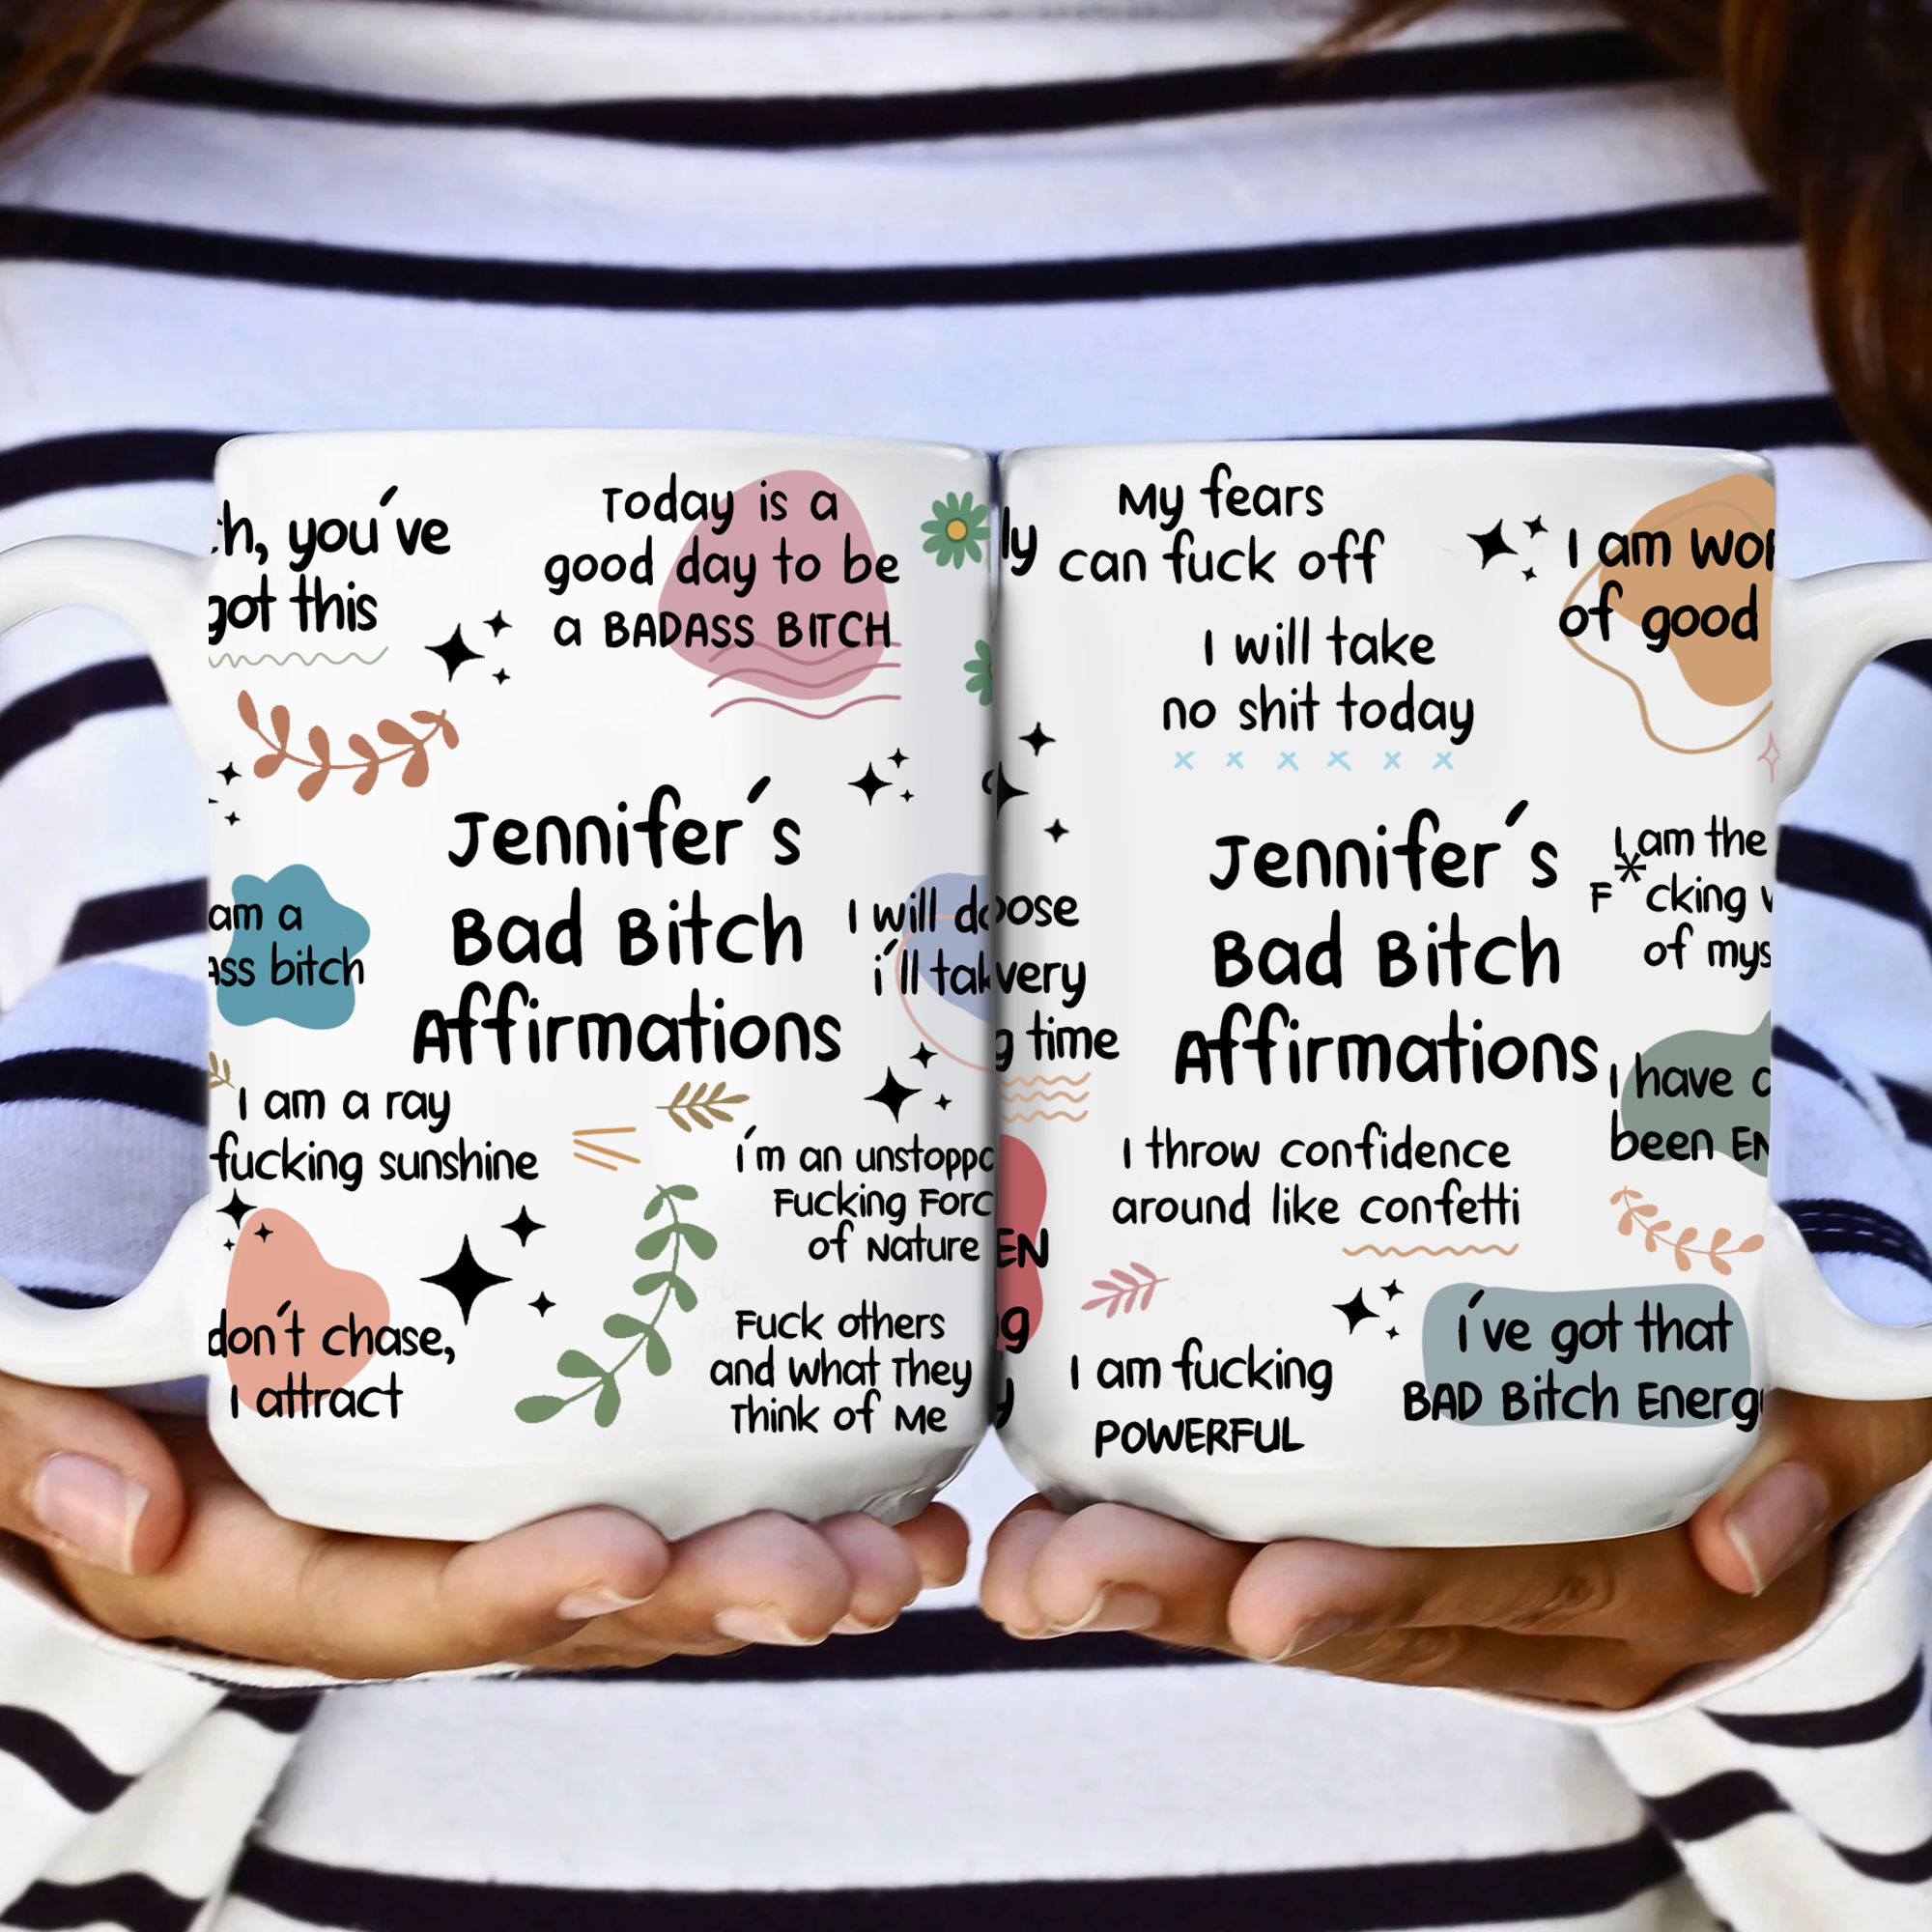 you´ve
got this
Today is a
good day to be
a BADASS BITCH
Jennifer´s
Bad Bitch
Affirmations
am a
bitch
I will
i´ll
I am a ray
fucking sunshine
i´m an
Fucking
of Nature
don´t chase,
I attract
Fuck others
and What They
Think of Me
My fears
can fuck off
I will take
no shit today
I am
of good
Jennifer´s
Bad Bitch
Affirmations
I am the
F*cking
of
time
I have
been
I throw confidence
around like confetti
I am fucking
POWERFUL
i´ve got that
BAD Bitch